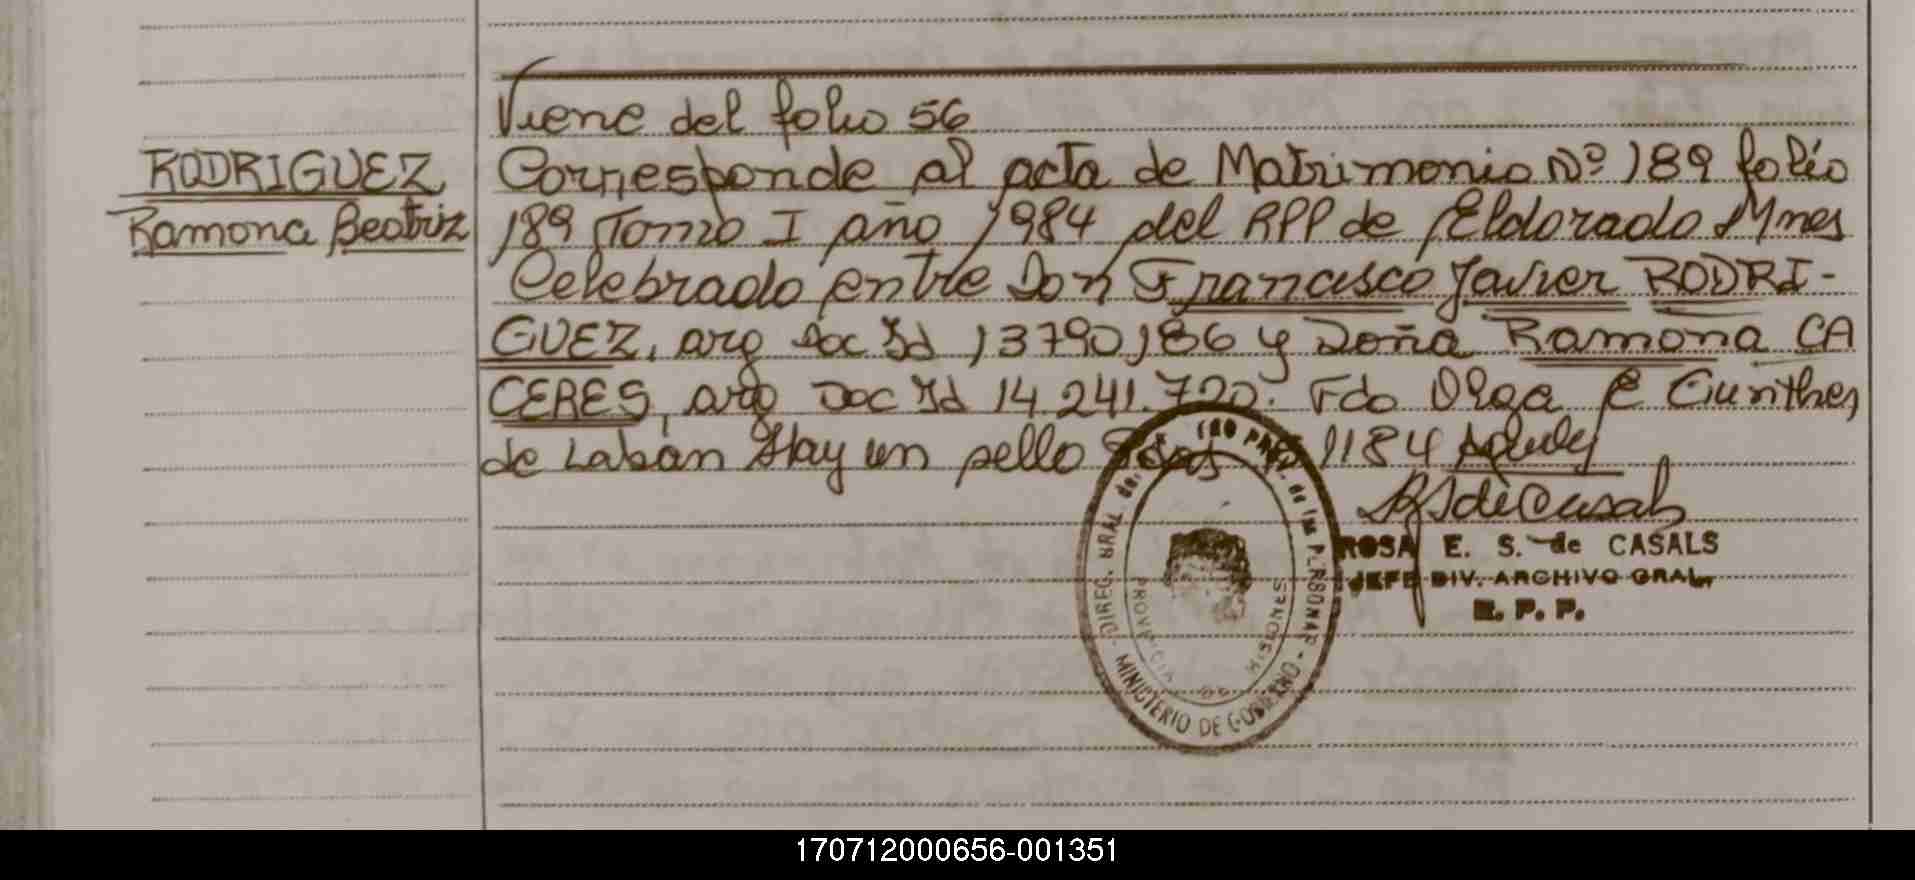 Viene del folio 56
RODRIGUEZ
Ramona Beatriz
Corresponde al acta de Matrimonio Nº 189 folio
189 Tomo I año 1984 del RPP de Eldorado Mnes
Celebrado entre Don Francisco Javier RODRI-
GUEZ, arg Doc Id 13790186 y Doña Ramona CA
CERES, arg Doc Id 14.241.720. Fdo Olga E Gunther
de Laban Hay un sello 1184
ROSA E. S. de CASALS
JEFE DIV. ARCHIVO GRAL.
R. P. P.
DIREC. GRAL. de. de las PERSONAS - MINISTERIO DE GOBIERNO -
PROVINCIA DE MISIONES
170712000656-001351